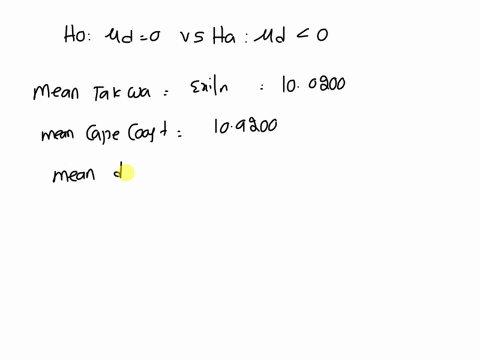 Ho: µd=0 vs Ha: µd < 0
Mean Takwa = Σxi/n = 10.0200
mean Cape Coast = 10.9200
mean d